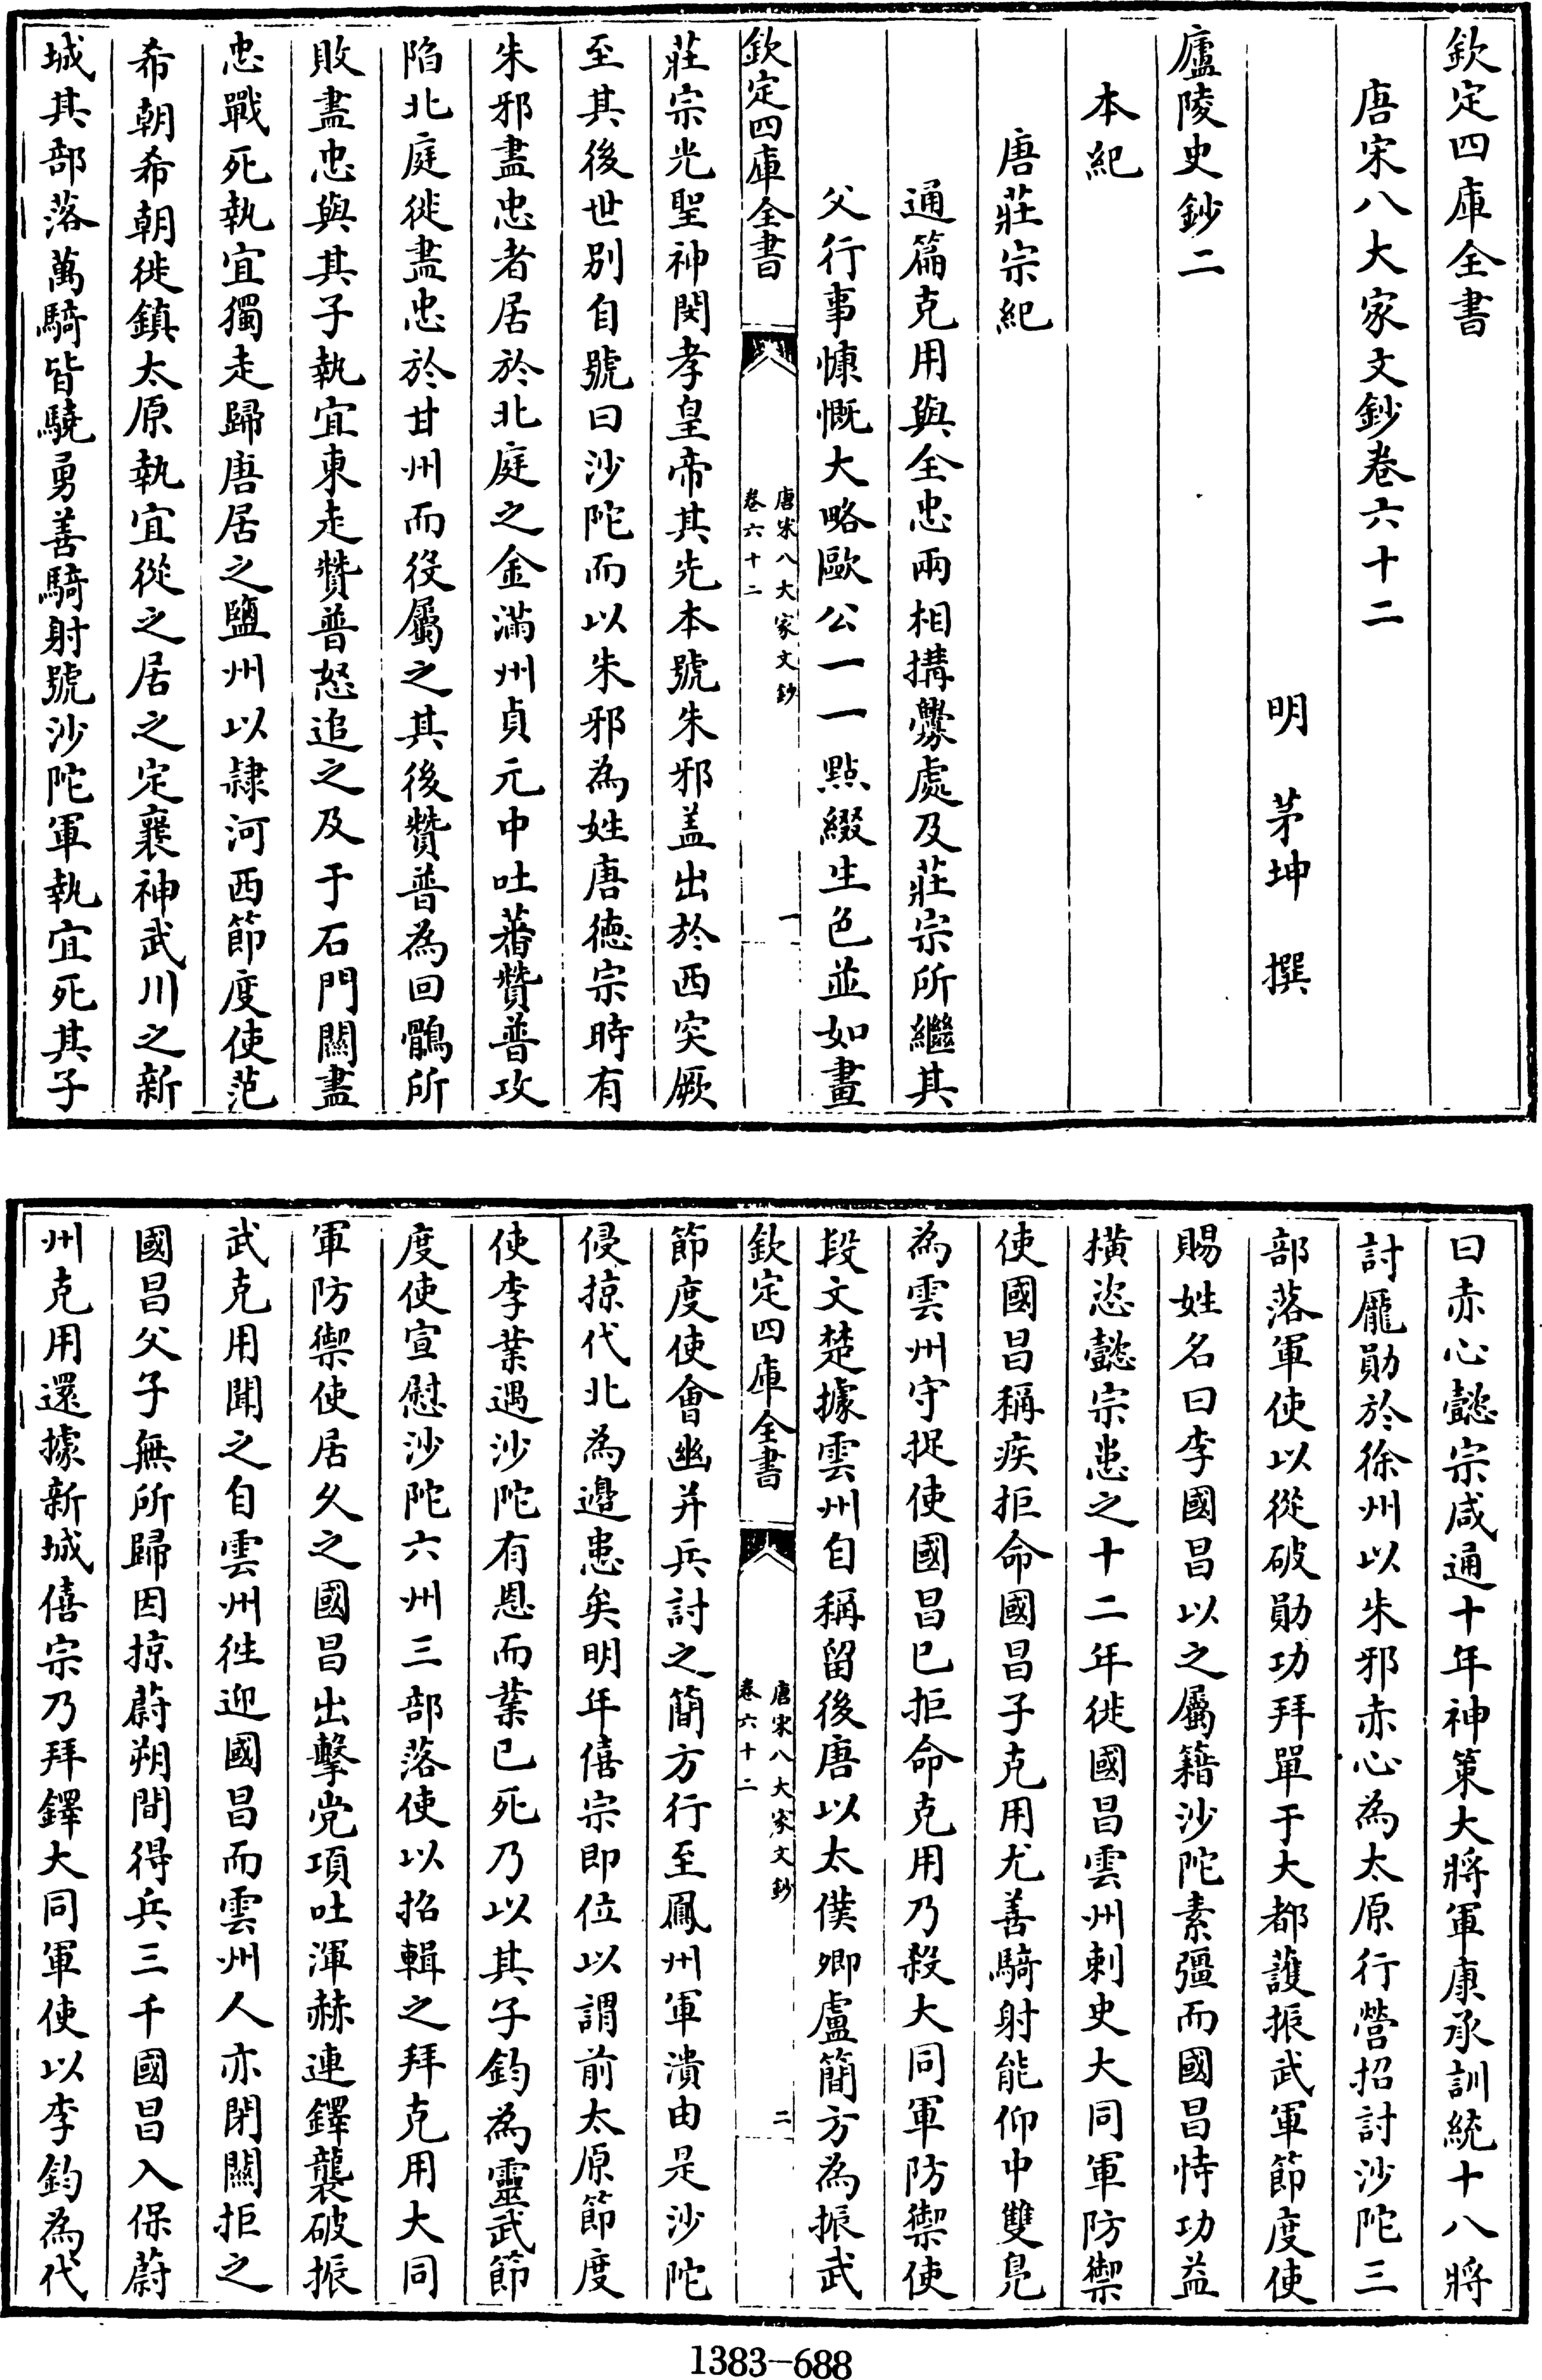 欽定四庫全書
唐宋八大家文鈔卷六十二
明 茅坤 撰
廬陵史鈔二
本紀
唐莊宗紀
通篇克用與全忠兩相搆釁處及莊宗所繼其
父行事慷慨大略歐公一一點綴生色並如畫
欽定四庫全書
唐宋八大家文鈔
卷六十二
一
莊宗光聖神閔孝皇帝其先本號朱邪盖出於西突厥
至其後世别自號曰沙陀而以朱邪為姓唐德宗時有
朱邪盡忠者居於北庭之金滿州貞元中吐蕃贊普攻
陷北庭徙盡忠於甘州而役屬之其後贊普為回鶻所
敗盡忠與其子執宜東走贊普怒追之及于石門關盡
忠戰死執宜獨走歸唐居之鹽州以隷河西節度使范
希朝希朝徙鎮太原執宜從之居之定襄神武川之新
城其部落萬騎皆驍勇善騎射號沙陀軍執宜死其子
曰赤心懿宗咸通十年神策大將軍康承訓統十八將
討龎勛於徐州以朱邪赤心為太原行營招討沙陀三
部落軍使以從破勛功拜單于大都護振武軍節度使
賜姓名曰李國昌以之屬籍沙陀素彊而國昌恃功益
横恣懿宗患之十二年徙國昌雲州刺史大同軍防禦
使國昌稱疾拒命國昌子克用尤善騎射能仰中雙鳬
為雲州守捉使國昌已拒命克用乃殺大同軍防禦使
段文楚據雲州自稱留後唐以太僕卿盧簡方為振武
欽定四庫全書
唐宋八大家文鈔
卷六十二
二
節度使會幽并兵討之簡方行至鳳州軍潰由是沙陀
侵掠代北為邊患矣明年僖宗即位以謂前太原節度
使李業遇沙陀有恩而業已死乃以其子鈞為靈武節
度使宣慰沙陀六州三部落使以招輯之拜克用大同
軍防禦使居久之國昌出擊党項吐渾赫連鐸襲破振
武克用聞之自雲州往迎國昌而雲州人亦閉關拒之
國昌父子無所歸因掠蔚朔間得兵三千國昌入保蔚
州克用還據新城僖宗乃拜鐸大同軍使以李鈞為代
1383-688